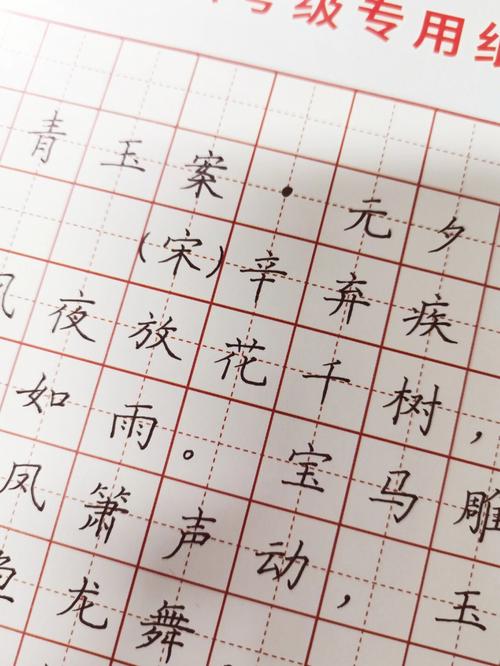 级专用纸
青玉案·元夕
(宋)辛弃疾
风夜放花千树，
如雨。宝马雕
凤箫声动，玉
鱼龙舞